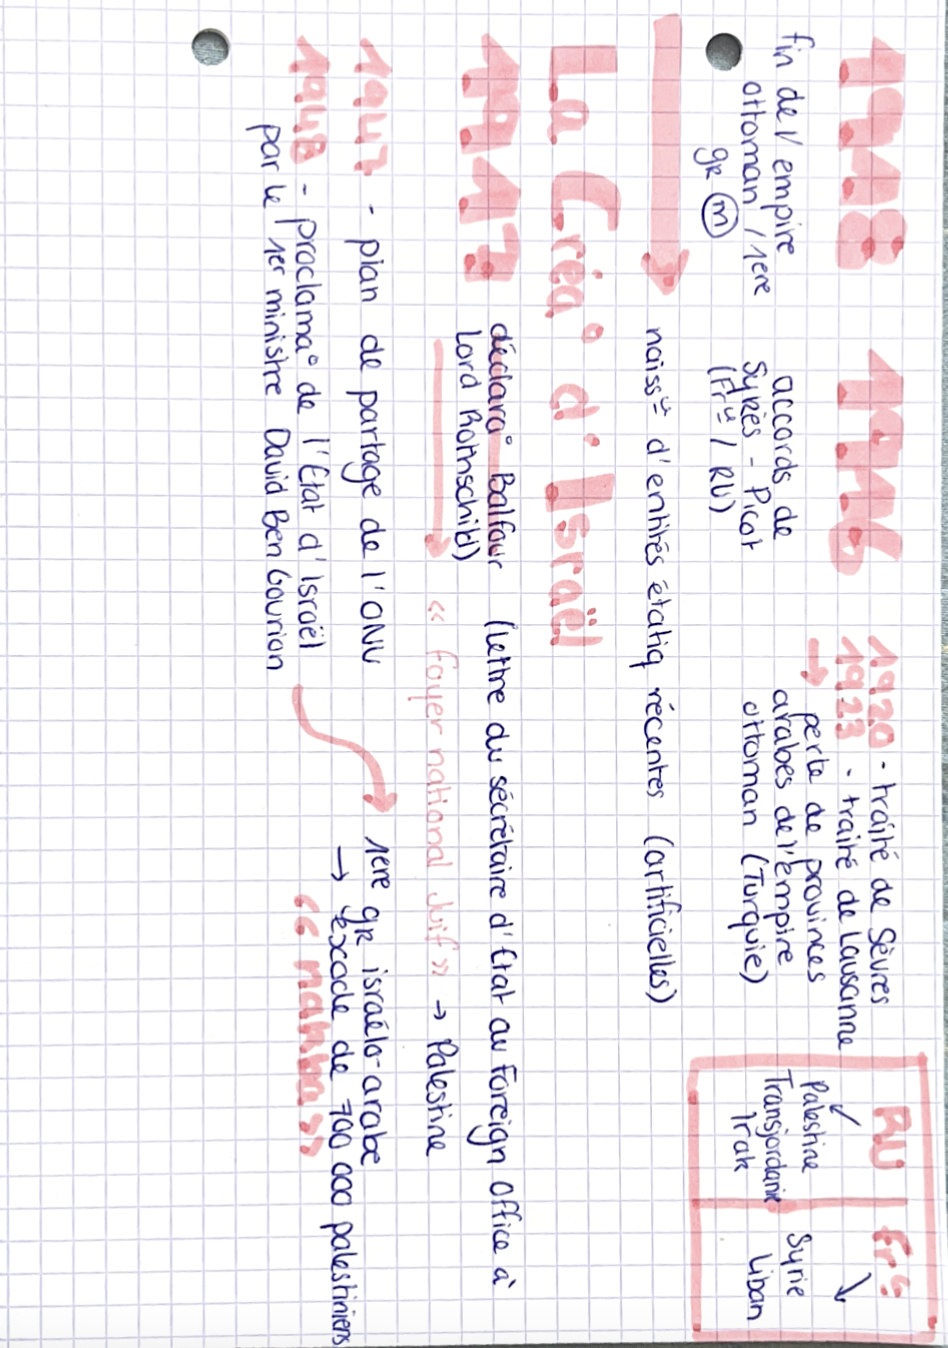 1918
fin de l'empire
ottoman / 1ere
gr (m)
1916
accords de
Sykes - Picot
(Frce / RU)
1920 - traité de Sèvres
1923 - traité de Lausanne
→ perte de provinces
arabes de l'empire
ottoman (Turquie)
RU
Palestine
Transjordanie
Irak
Frce
Syrie
Liban
naissce d'entités étatiq récentes (artificielles)
La Créa° d'Israël
1917
déclara° Balfour (lettre du secrétaire d'Etat au Foreign Office à
Lord Rothschild)
→ « foyer national Juif » → Palestine
1947 - plan de partage de l'ONU
1948 - proclama° de l'Etat d'Israël
par le 1er ministre David Ben Gourion
1ere gr israélo-arabe
→ exode de 700 000 palestiniens
« nakba »